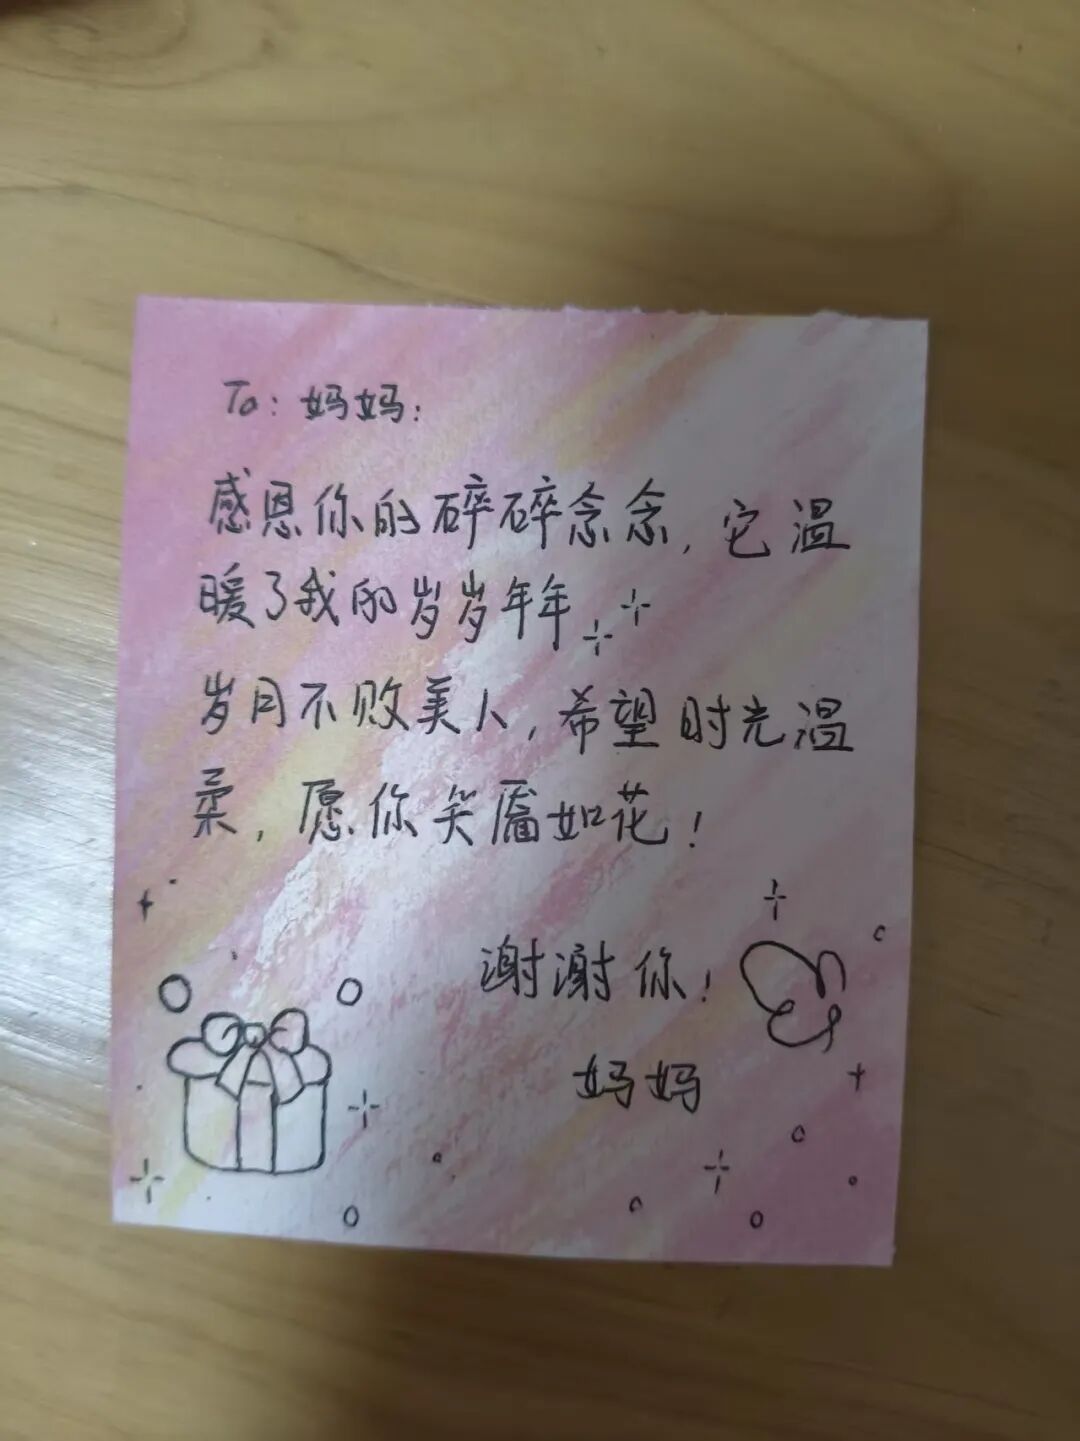 To：妈妈：
感恩你的碎碎念念，它温
暖了我的岁岁年年
岁月不败美人，希望时光温
柔，愿你笑靥如花！
谢谢你！
妈妈